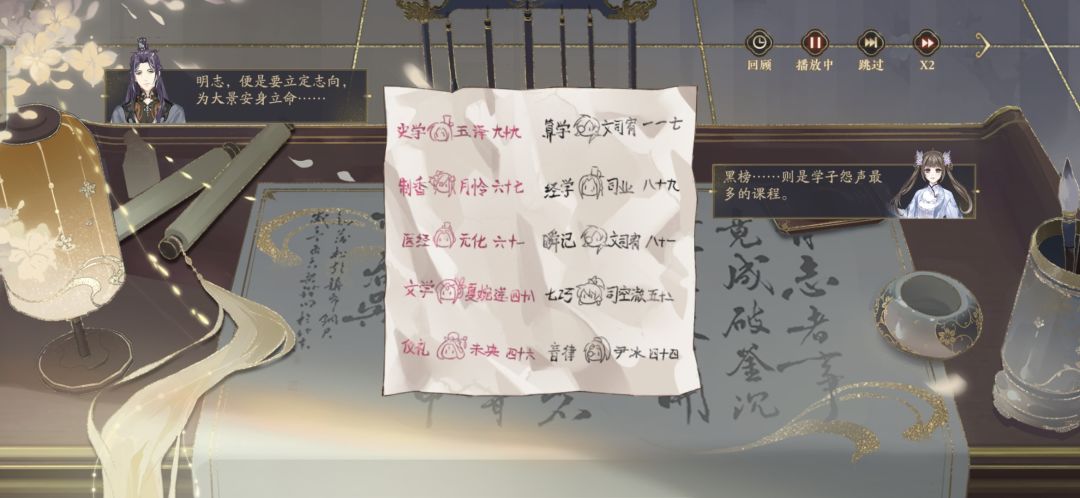 回顾
播放中
跳过
X2
明志，便是要立定志向，
为大景安身立命……
史学 五泽 九十九
算学 文司宥 一一七
制香 月怜 六十七
经学 司业 八十九
医经 元化 六十一
瞬记 文司宥 八十一
文学 夏婉莲 四十八
七巧 司空澈 五十二
仪礼 未央 四十六
音律 尹冰 四十四
黑榜……则是学子怨声最
多的课程。
有志者事
竟成破釜沉